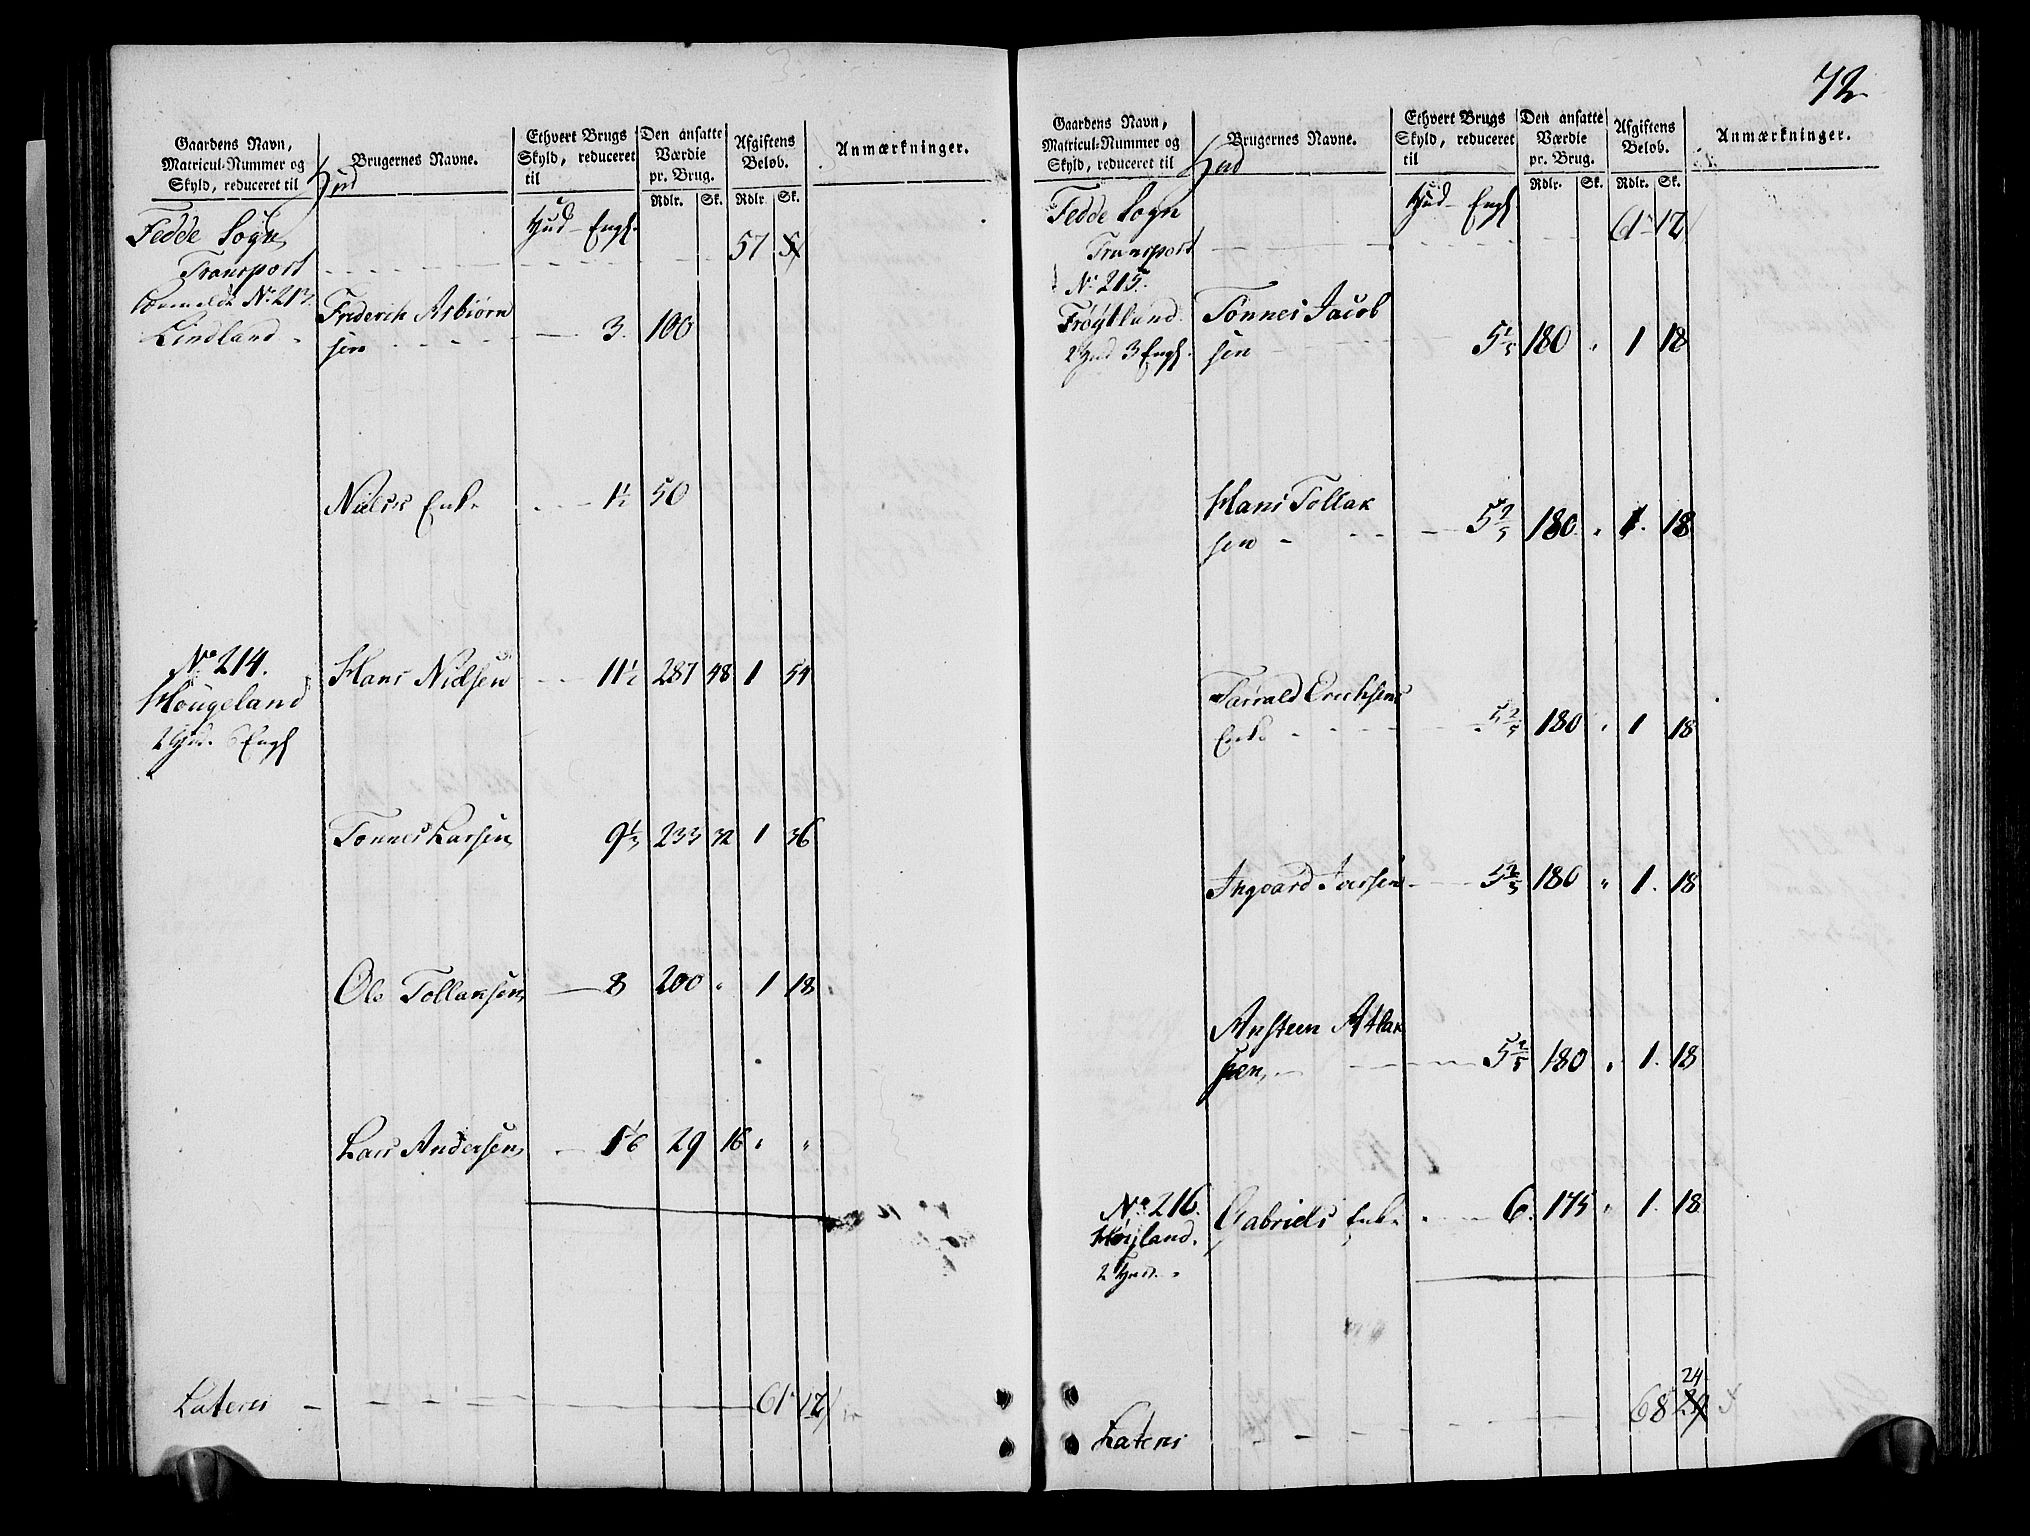 Gaardens Navn,
Matricul-Nummer og
Skyld, reduceret til Hud
Brugernes Navne.
Ethvert Brugs
Skyld, reduceret
til
Den ansatte
Værdie
pr. Brug.
Afgiftens
Beløb.
Anmærkninger.
Rdlr. Sk. Rdlr. Sk.
Fedde Sogn Hud Engl.
Transport 57
No 213.
Lindland
Friderich Asbiørn
sen 3. 100
Niels's Enke 1½ 50
No 214. Hans Nielsen 11½ 287 48 1 54
Hougeland
2 Hud. 6 Engl
Tonnes Larsen 9⅓ 233 32 1 36
Ole Tollaksen 8 200 " 1 18
Lars Andersen 1⅙ 29 16 " "
Lateris 61 12
72
Gaardens Navn,
Matricul-Nummer og
Skyld, reduceret til Hud
Brugernes Navne.
Ethvert Brugs
Skyld, reduceret
til
Den ansatte
Værdie
pr. Brug.
Afgiftens
Beløb.
Anmærkninger.
Rdlr. Sk. Rdlr. Sk.
Fedde Sogn Hud Engl
Transport 61 12
No 215.
Frøÿtland Tønnes Jacob
2 Hud 3 Engl. sen 5⅖ 180 " 1 18
Hans Tollak
sen 5⅖ 180 " 1. 18
Tarrald Erichsens
Enke 5⅖ 180 " 1 18
Ingvard Iversen 5⅖ 180 " 1. 18
Ansteen Atlak
sen 5⅖ 180 " 1. 18
No 216. Gabriels Enke 6. 175 " 1. 18
Høyland.
2 Hud.
24
Lateris 68